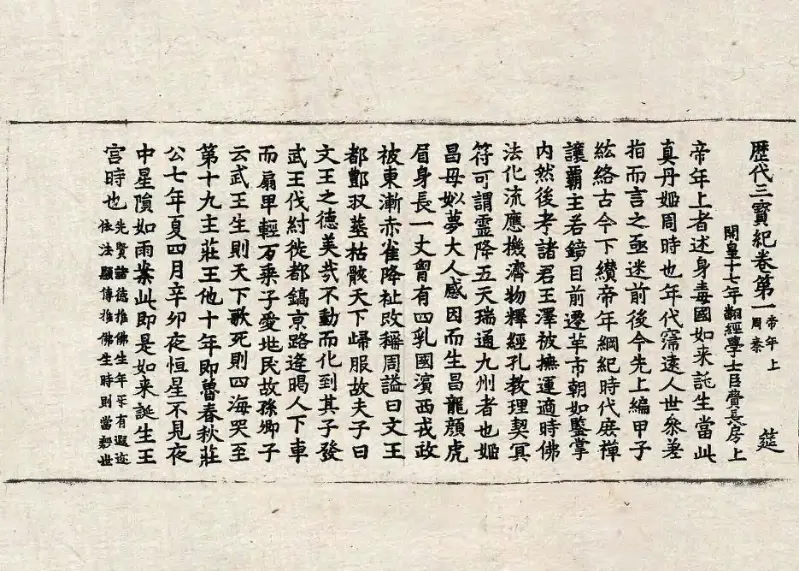 歷代三寶紀卷第一 帝年上 周秦 筵
開皇十七年翻經學士臣費長房上
帝年上者述身毒國如來託生當此
真丹姬周時也年代窵遠人世參差
指而言之亟迷前後今先上編甲子
紘絡古今下纘帝年綱紀時代庶禪
讓霸主若鏡目前遷革市朝如鑒掌
内然後孝諸君王澤被撫運適時佛
法化流應機濟物釋經孔教理契冥
符可謂靈降五天瑞通九州者也姬
昌母姒夢大人感因而生昌龍顏虎
眉身長一丈胷有四乳國濱西戎政
被東漸赤雀降祉改稱周謚曰文王
都酆収葬枯骸天下歸服故夫子曰
文王之德美哉不動而化到其子發
武王伐紂徙都鎬京路逢暍人下車
而扇甲輕万乘子愛地民故孫卿子
云武王生則天下歌死則四海哭至
第十九主莊王他十年即魯春秋莊
公七年夏四月辛夘夜恒星不見夜
中星隕如雨案此即是如來誕生王
宫時也 先賢諸德推佛生年互有遐迩
依法顯傳推佛生時則當殷世